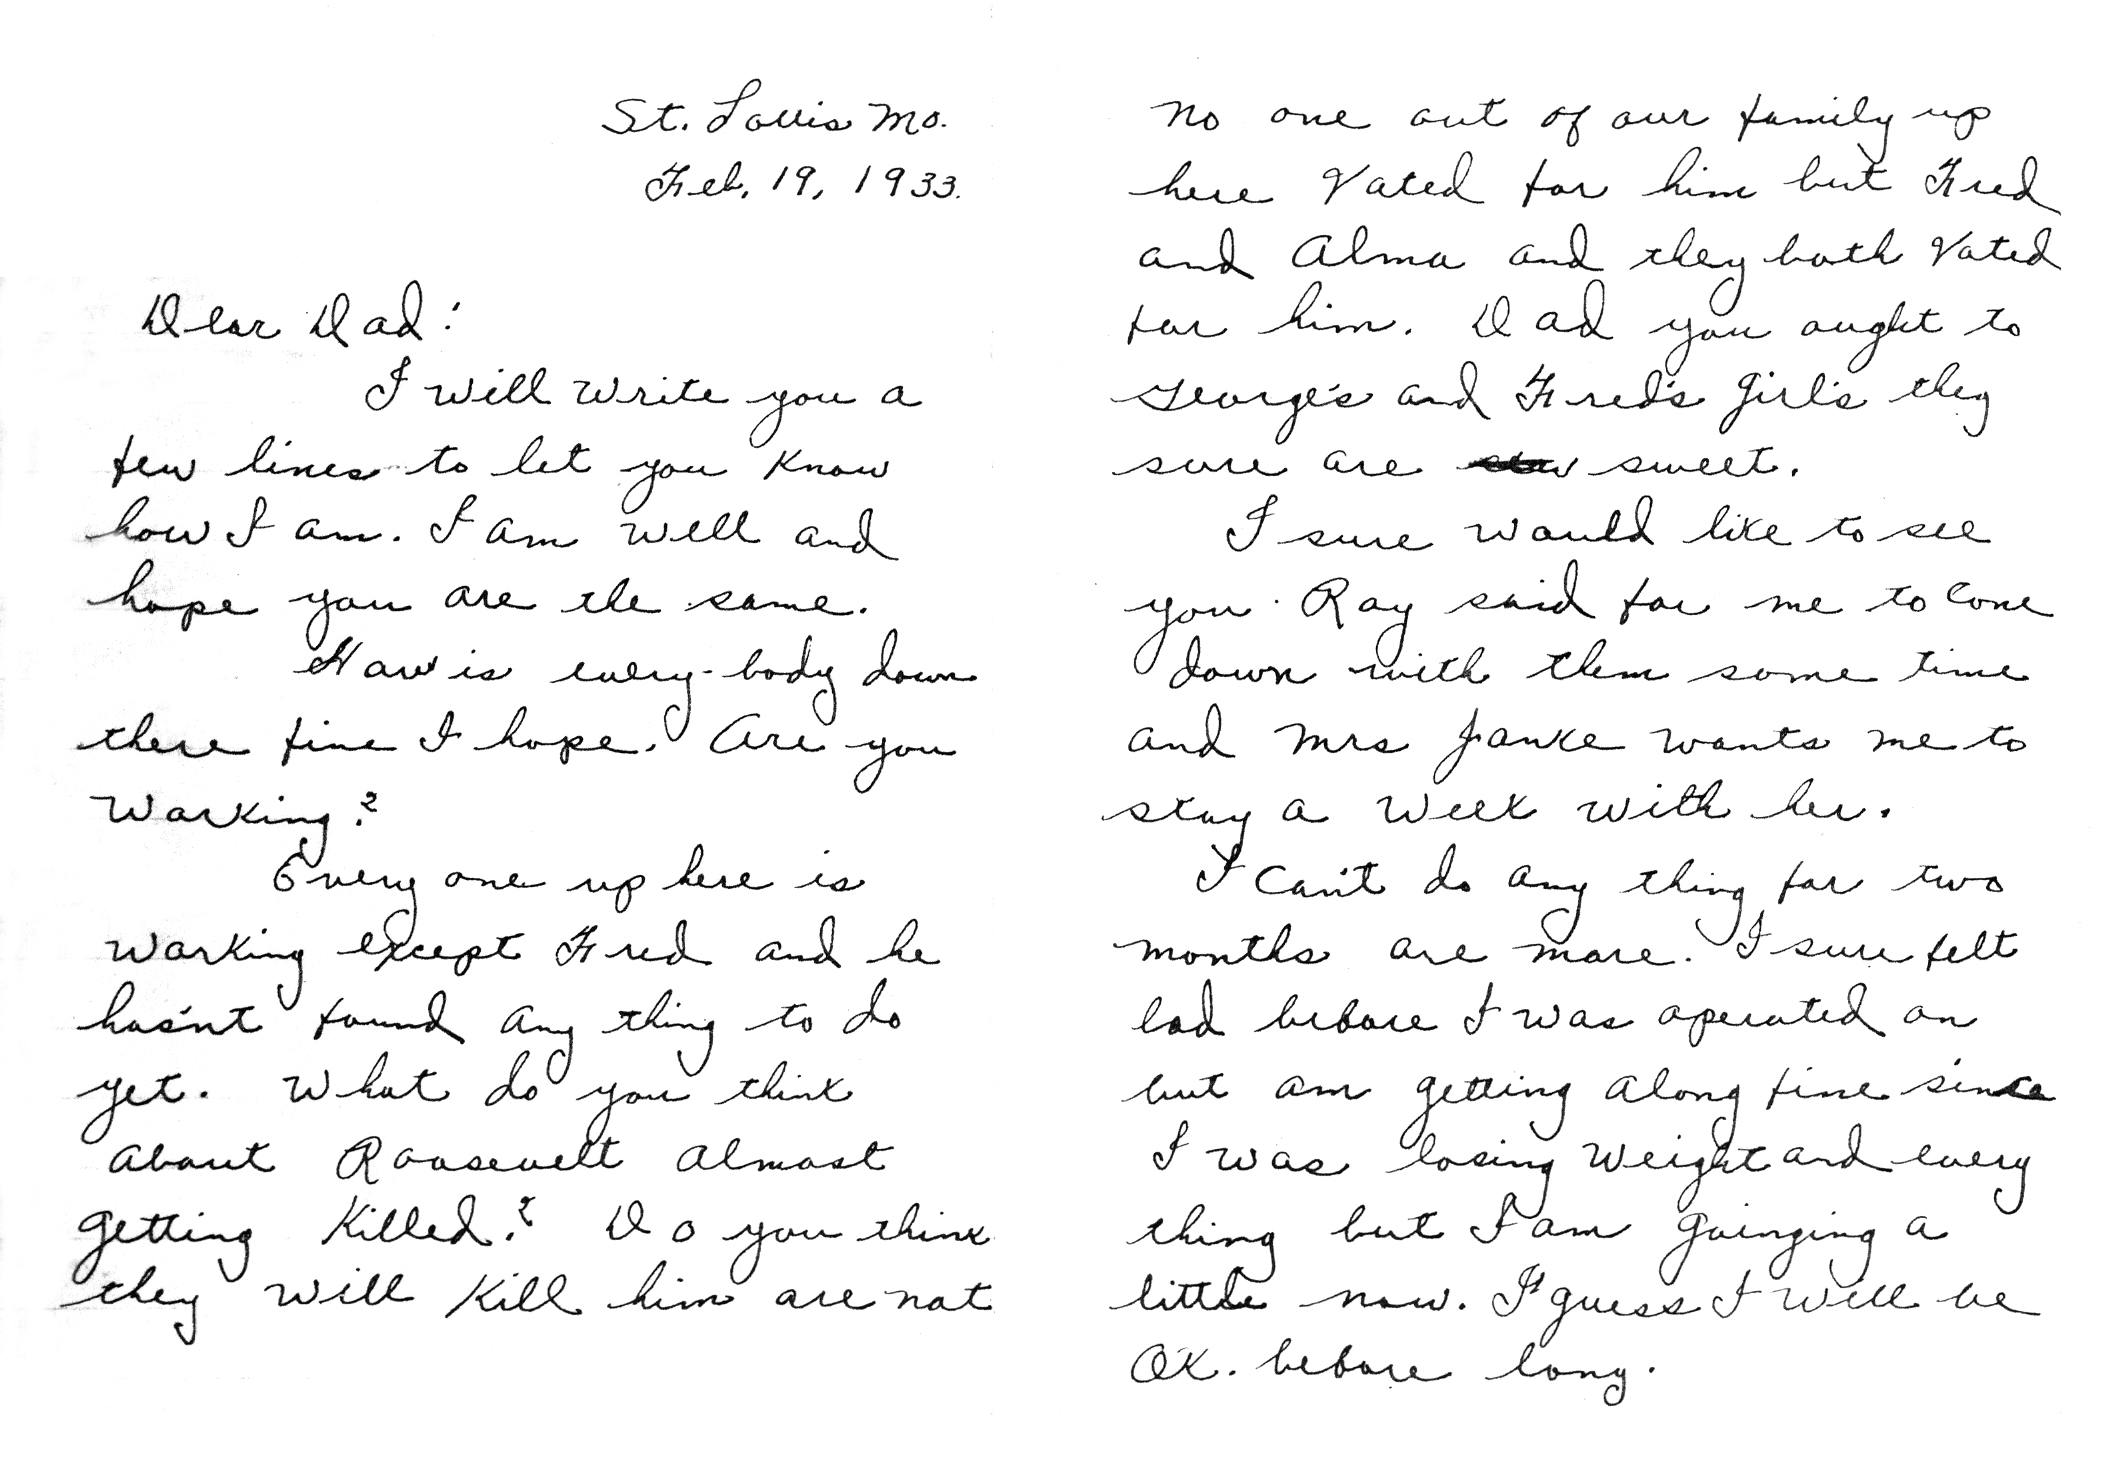 St. Louis Mo.
Feb. 19, 1933.
Dear Dad:
I will write you a
few lines to let you know
how I am. I am well and
hope you are the same.
How is every-body down
there fine I hope. Are you
working?
Every one up here is
working except Fred and he
has'nt found any thing to do
yet. What do you think
about Roosevelt almost
getting killed? Do you think
they will kill him are not
No one out of our family up
here voted for him but Fred
and Alma and they both voted
for him. Dad you ought to
George's and Fred's girl's they
sure are sweet.
I sure would like to see
you. Ray said for me to come
down with them some time
and Mrs Janke wants me to
stay a week with her.
I can't do any thing for two
months are more. I sure felt
bad before I was operated on
but am getting along fine since
I was losing weight and every
thing but I am gainging a
little now. I guess I will be
OK. before long.